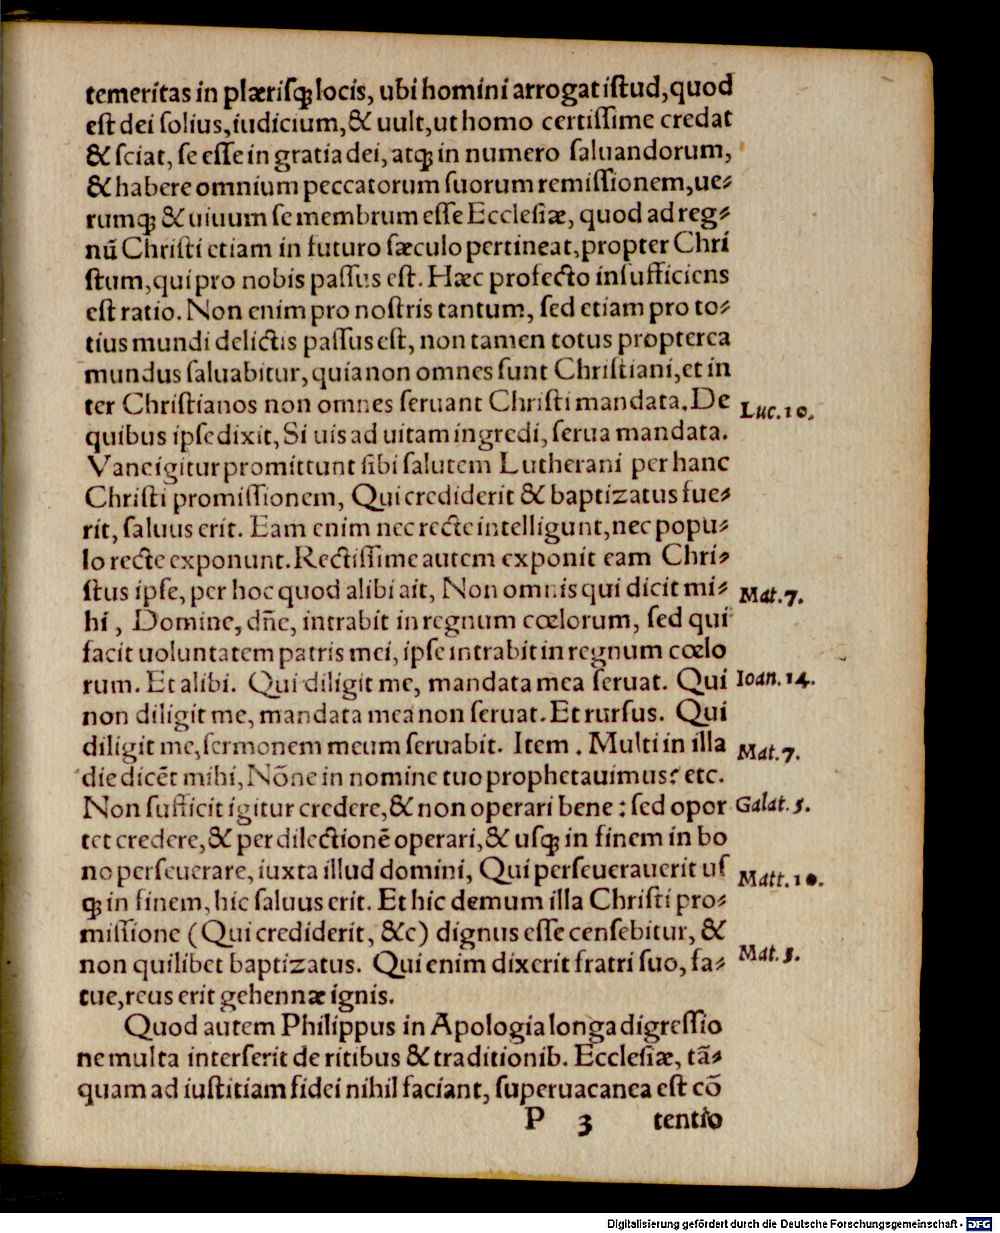 temeritas in plæriſqꝫ locis, ubi homini arrogat iſtud, quod
eſt dei ſolius, iudicium, & uult, ut homo certiſſime credat
& ſciat, ſe eſſe in gratia dei, atqꝫ in numero ſaluandorum,
& habere omnium peccatorum ſuorum remiſſionem, ue⸗
rumqꝫ & uiuum ſe membrum eſſe Eccleſiæ, quod ad reg⸗
nũ Chriſti etiam in futuro ſæculo pertineat, propter Chri
ſtum, qui pro nobis paſſus eſt. Hæc profecto inſufficiens
eſt ratio. Non enim pro noſtris tantum, ſed etiam pro to⸗
tius mundi delictis paſſus eſt, non tamen totus propterea
mundus ſaluabitur, quia non omnes ſunt Chriſtiani, et in
ter Chriſtianos non omnes ſeruant Chriſti mandata. De
Luc. 10.
quibus ipſe dixit, Si uis ad uitam ingredi, ſerua mandata.
Vane igitur promittunt ſibi ſalutem Lutherani per hanc
Chriſti promiſſionem, Qui crediderit & baptizatus fue⸗
rit, ſaluus erit. Eam enim nec recte intelligunt, nec popu⸗
lo recte exponunt. Rectiſſime autem exponit eam Chri⸗
ſtus ipſe, per hoc quod alibi ait, Non omnis qui dicit mi⸗
Mat. 7.
hi, Domine, dñe, intrabit in regnum cœlorum, ſed qui
facit uoluntatem patris mei, ipſe intrabit in regnum cœlo
rum. Et alibi. Qui diligit me, mandata mea ſeruat. Qui
Ioan. 14.
non diligit me, mandata mea non ſeruat. Et rurſus. Qui
diligit me, ſermonem meum ſeruabit. Item. Multi in illa
Mat. 7.
die dicẽt mihi, Nõne in nomine tuo prophetauimus? etc.
Non ſufficit igitur credere, & non operari bene: ſed opor
Galat. 5.
tet credere, & per dilectionẽ operari, & uſqꝫ in finem in bo
no perſeuerare, iuxta illud domini, Qui perſeuerauerit uſ
Matt. 10.
qꝫ in finem, hic ſaluus erit. Et hic demum illa Chriſti pro⸗
miſſione (Qui crediderit, &c) dignus eſſe cenſebitur, &
non quilibet baptizatus. Qui enim dixerit fratri ſuo, fa⸗
Mat. 5.
tue, reus erit gehennæ ignis.
Quod autem Philippus in Apologia longa digreſſio
ne multa interſerit de ritibus & traditionib. Eccleſiæ, tã⸗
quam ad iuſtitiam fidei nihil faciant, ſuperuacanea eſt cõ
P 3 tentio
Digitalisierung gefördert durch die Deutsche Forschungsgemeinschaft - DFG